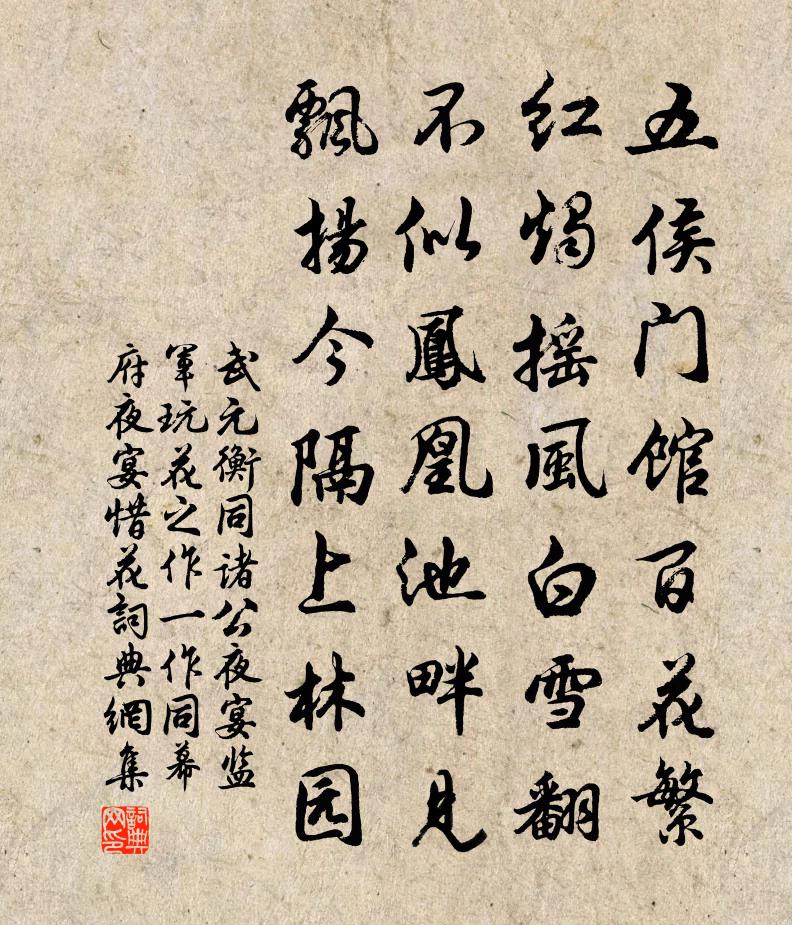 五侯门馆百花繁
红烛摇風白雪翻
不似鳳凰池畔見
飄揚今隔上林园
武元衡同诸公夜宴监
軍玩花之作一作同幕
府夜宴惜花詞典網集
詞典
网印